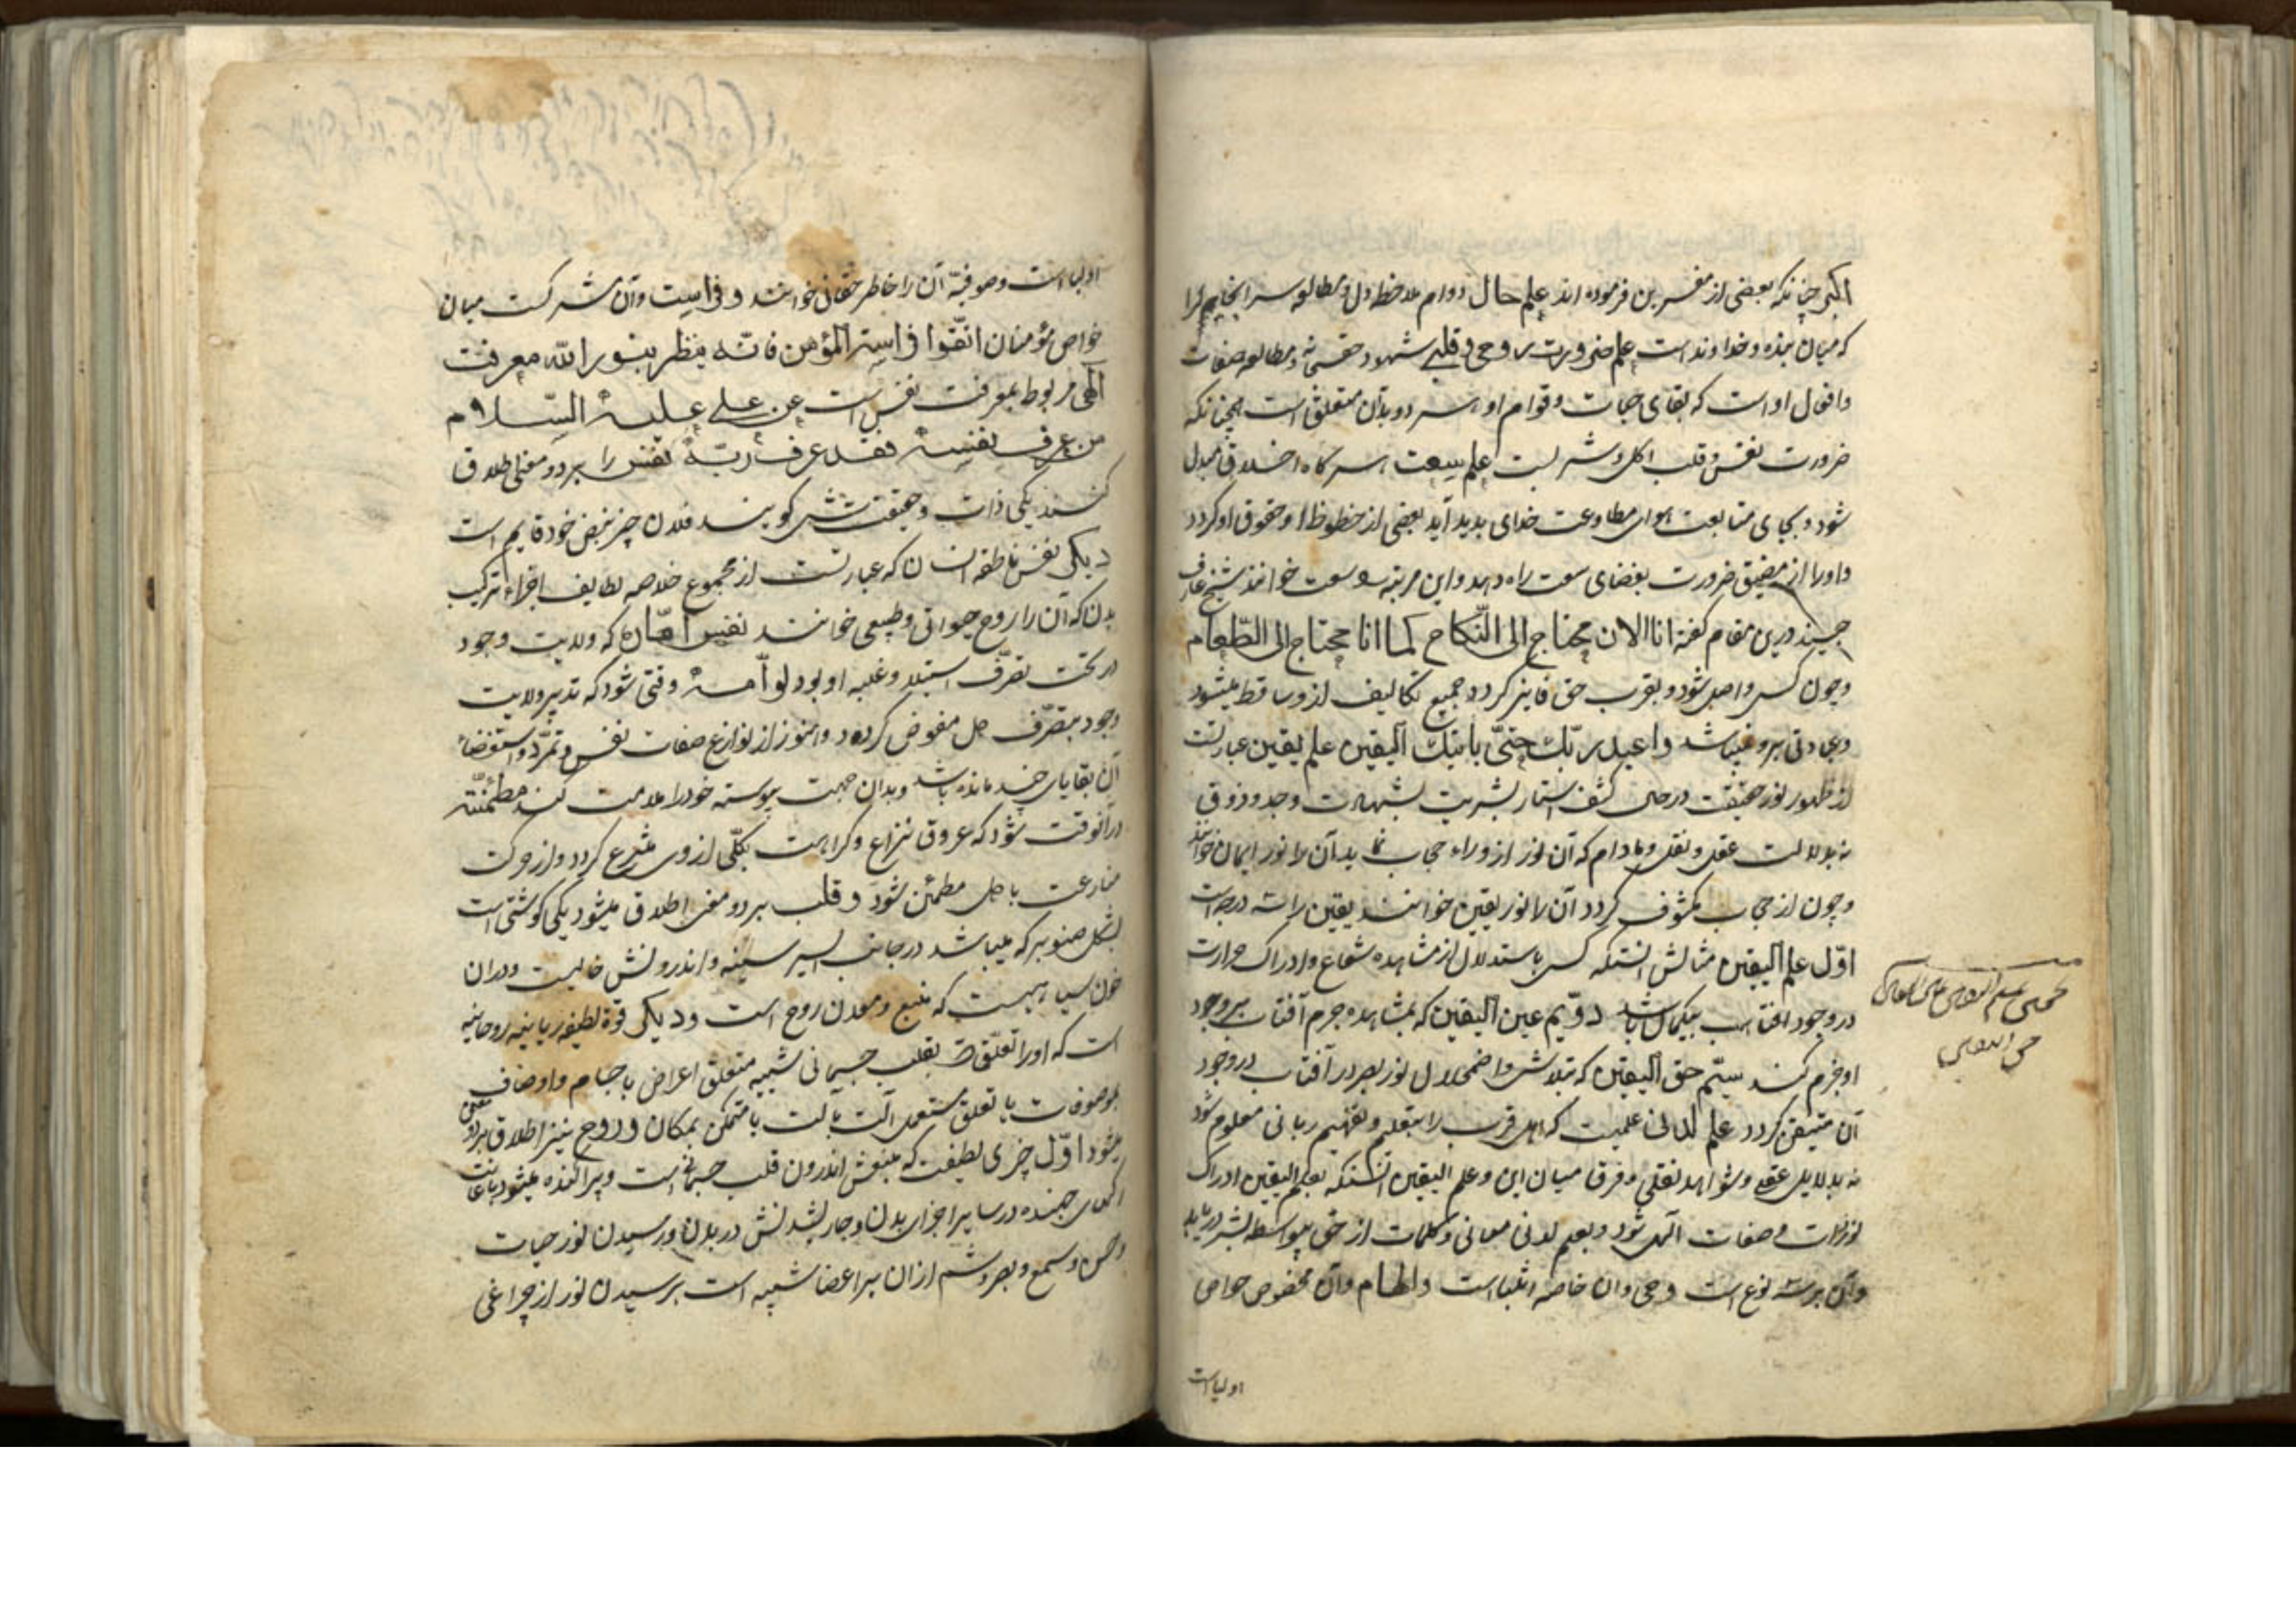 اکبر چنانکه بعضی از مفسرین فرموده اند علم حال دوام ملاحظه دل و مطالعه سر
که میان بنده و خداوند است علم ضرورت روحی و قلبی شهود حق و مطالعه صفات
و افعال اوست که بقای حیات و قوام او بدان متعلق است همچنانکه
ضرورت نفس و قلب اکل و شربست علم سعت هرگاه اخلاق مبدل
شود و بجای متابعت هوا مطاوعت خدای پدید آید بعضی از حظوظ او حقوق او کردد
و او را از مضیق ضرورت بفضای سعت راه دهد و این مرتبه سعت خوانند شیخ عارف
جنید درین مقام کفته انا الان محتاج الی النکاح کما انا محتاج الی الطعام
و چون کسی واصل شود و بقرب حق فایز کردد جمیع تکالیف ازو ساقط میشود
و عبادتی برو نمیباشد واعبد ربّک حتّی یأتیک الیقین علم یقین عبارتست
از ظهور نور حقیقت در حین کشف استار بشریت بشهادت وجد و ذوق
نه بدلالت عقل و نقل و مادام که آن نور از وراء حجاب نماید آن را نور ایمان خوانند
و چون از حجاب مکشوف کردد آن را نور یقین خوانند یقین را سه درجه است
اوّل علم الیقین مثالش آنستکه کسی باستدلال از مشاهده شعاع و ادراک حرارت
در وجود آفتاب بیکمان باشد دوّیم عین الیقین که بمشاهده جرم آفتاب بر وجود
او جزم کند سیّم حق الیقین که بتلاشی و اضمحلال نور بصر در آفتاب در وجود
آن متیقن کردد علم لدنی علمیست که اهل قرب را بتعلیم و تفهیم ربانی معلوم شود
نه بدلایل عقلی و شواهد نقلی و فرق میان این و علم الیقین آنستکه بعلم الیقین ادراک
نور ذات و صفات الهی شود و بعلم لدنی معانی و کلمات از حق بیواسطه بشر دریابد
و آن بر سه نوع است وحی و ان خاصه انبیاست و الهام و آن مخصوص خواص
اولیاست
اولیاست و صوفیّه آن را خاطر حقانی خوانند و فراست و آن مشترکست میان
خواص مؤمنان اتّقوا فراسة المؤمن فانّه ینظر بنور الله معرفت
الهی مربوط بمعرفت نفس است عن علی علیه السّلام
من عرف نفسه فقد عرف ربّه نفس را بر دو معنی اطلاق
کنند یکی ذات و حقیقت شئ کویند فلان چیز بنفس خود قایم است
دیکر نفس ناطقه انسان که عبارتست از مجموع خلاصه لطایف اجزاء ترکیب
بدن که آن را روح حیوانی و طبیعی خوانند نفس امّاره که ولایت وجود
در تحت تصرّف استیلا و غلبه او بود لوّامه وقتی شود که تدبیر ولایت
وجود بتصرّف دل مفوض کردد و هنوز از نوازع صفات نفس و تمرّد و
آن بقایای چند مانده باشد و بدان جهت پیوسته خود را ملامت کند مطمئنّه
در آنوقت شود که عروق نزاع و کراهت بکلّی از وی منتزع کردد و از حرکت
منازعت با دل مطمئن شود و قلب بر دو معنی اطلاق میشود یکی کوشتی است
بشکل صنوبر که میباشد در جانب ایسر سینه و اندرونش خالیست و در ان
خون سیاهیست که منبع و معدن روح است و دیکر قوة لطیفه ربانیه روحانیه
است که او را تعلّقست بقلب جسمانی شبیه متعلق اعراض باجسام و اوصاف
بموصوفات یا تعلق مستعمل آلت بآلت یا متمکن بمکان و روح نیز اطلاق بر دو معنی
میشود اوّل چیزی لطیفت که منبعش اندرون قلب جسمانی است و پراکنده میشود باعانت
رکهای جهنده در سایر اجزای بدن و جاری شدنش در بدن و رسیدن نور حیات
و حس و سمع و بصر و شم از ان بر اعضا شبیه است برسیدن نور از چراغی